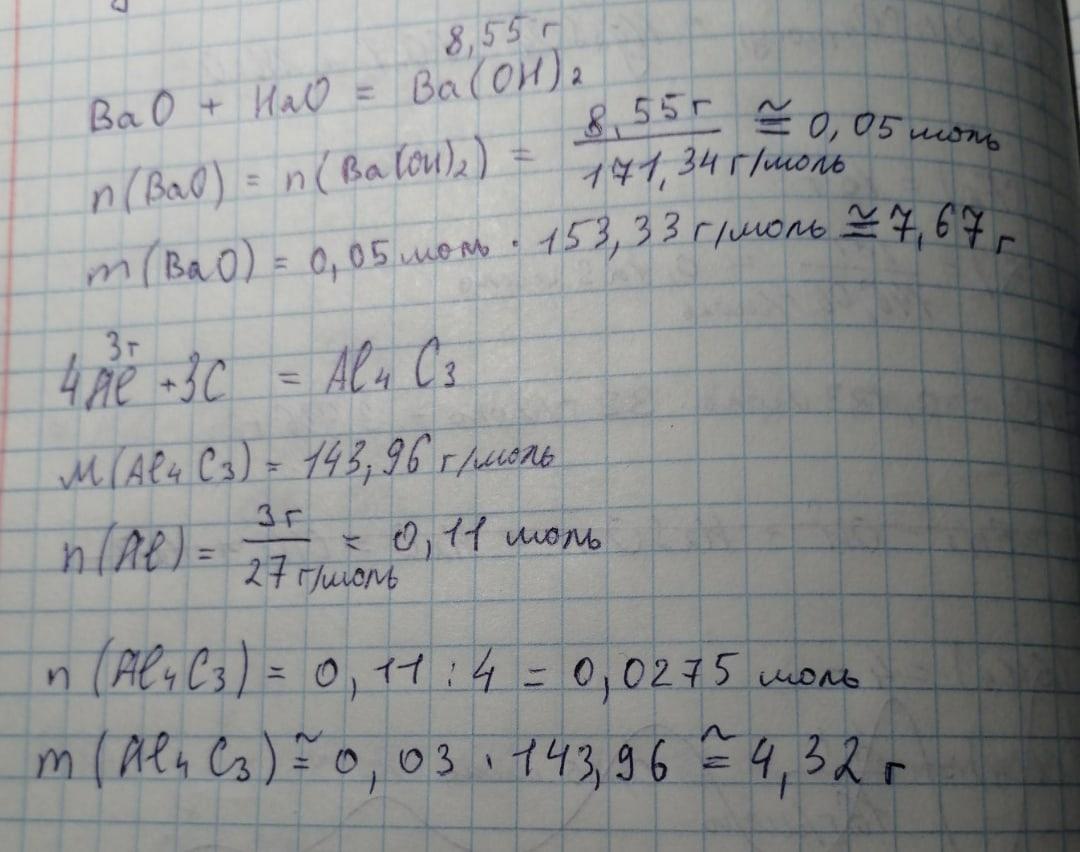 8,55 г
BaO + H₂O = Ba(OH)₂
n(BaO) = n(Ba(OH)₂) = 8,55 г / 171,34 г/моль ≅ 0,05 моль
m(BaO) = 0,05 моль · 153,33 г/моль ≅ 7,67 г
3г
4Al + 3C = Al₄C₃
M(Al₄C₃) = 143,96 г/моль
n(Al) = 3г / 27 г/моль = 0,11 моль
n(Al₄C₃) = 0,11 : 4 = 0,0275 моль
m(Al₄C₃) ≅ 0,03 · 143,96 ≅ 4,32 г